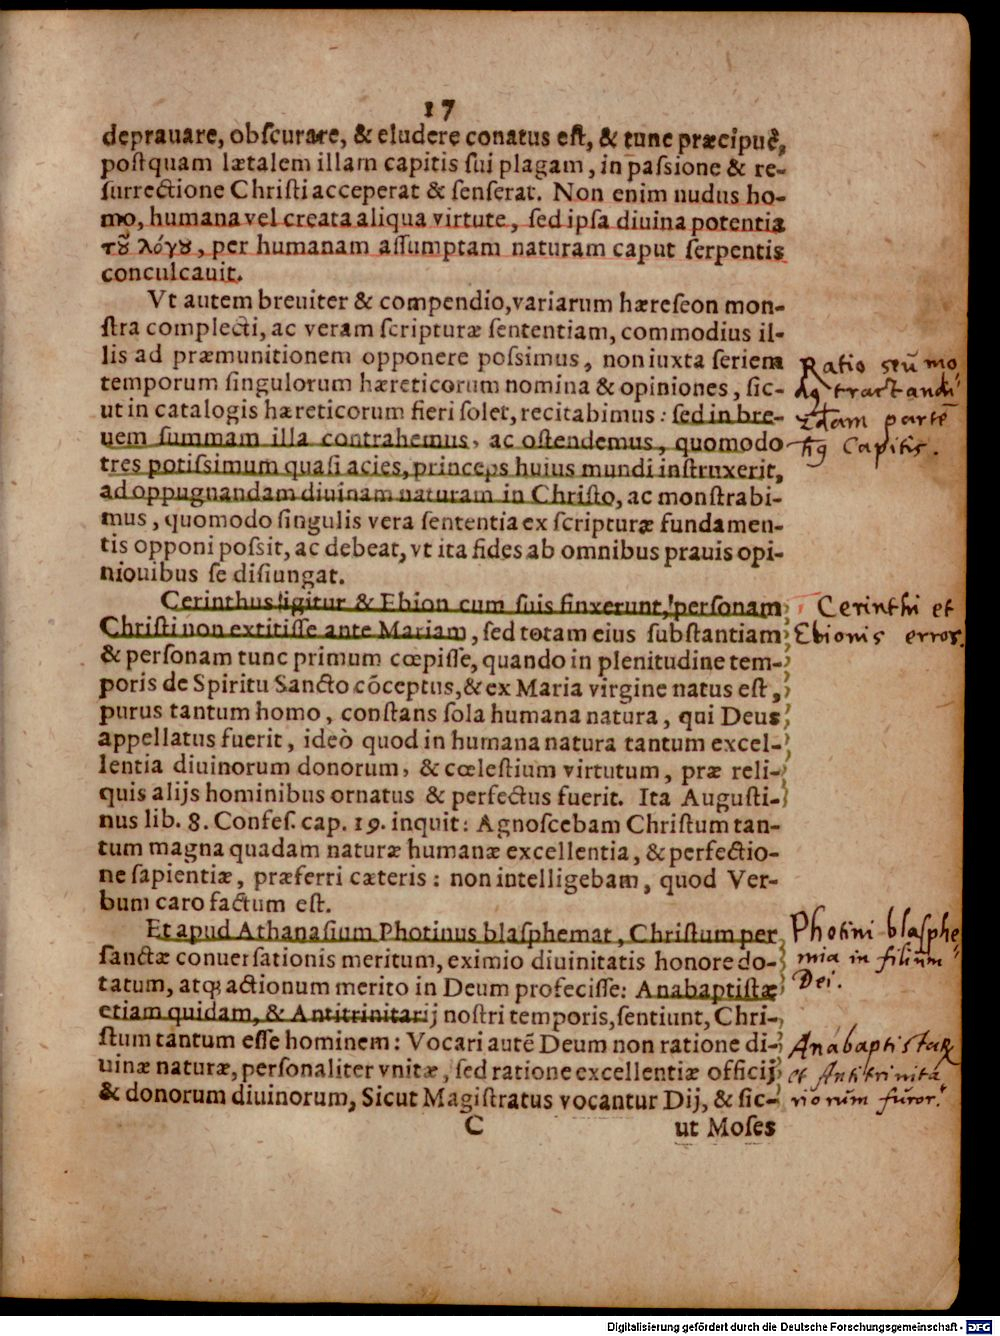 17
deprauare, obscurare, & eludere conatus est, & tunc præcipuè,
postquam lætalem illam capitis sui plagam, in passione & re-
surrectione Christi acceperat & senserat. Non enim nudus ho-
mo, humana vel creata aliqua virtute, sed ipsa diuina potentia
τȣ͂ λόγȣ, per humanam assumptam naturam caput serpentis
conculcauit.
Vt autem breuiter & compendio, variarum hæreseon mon-
stra complecti, ac veram scripturæ sententiam, commodius il-
lis ad præmunitionem opponere possimus, non iuxta seriem
temporum singulorum hæreticorum nomina & opiniones, sic-
ut in catalogis hæreticorum fieri solet, recitabimus: sed in bre-
uem summam illa contrahemus, ac ostendemus, quomodo
tres potissimum quasi acies, princeps huius mundi instruxerit,
ad oppugnandam diuinam naturam in Christo, ac monstrabi-
mus, quomodo singulis vera sententia ex scripturæ fundamen-
tis opponi possit, ac debeat, vt ita fides ab omnibus prauis opi-
niouibus se disiungat.
Ratio seu mo
tractandi
partē
Capitis.
Cerinthus igitur & Ebion cum suis finxerunt, personam
Christi non extitisse ante Mariam, sed totam eius substantiam
& personam tunc primum cœpisse, quando in plenitudine tem-
poris de Spiritu Sancto cōceptus, & ex Maria virgine natus est,
purus tantum homo, constans sola humana natura, qui Deus
appellatus fuerit, ideò quod in humana natura tantum excel-
lentia diuinorum donorum, & cœlestium virtutum, præ reli-
quis alijs hominibus ornatus & perfectus fuerit. Ita Augusti-
nus lib. 8. Confes. cap. 19. inquit: Agnoscebam Christum tan-
tum magna quadam naturæ humanæ excellentia, & perfectio-
ne sapientiæ, præferri cæteris: non intelligebam, quod Ver-
bum caro factum est.
Cerinthi et
Ebionis error.
Et apud Athanasium Photinus blasphemat, Christum per
sanctæ conuersationis meritum, eximio diuinitatis honore do-
tatum, atq; actionum merito in Deum profecisse: Anabaptistæ
etiam quidam, & Antitrinitarij nostri temporis, sentiunt, Chri-
stum tantum esse hominem: Vocari autē Deum non ratione di-
uinæ naturæ, personaliter vnitæ, sed ratione excellentiæ officij
& donorum diuinorum, Sicut Magistratus vocantur Dij, & sic-
Photini blasphe
mia in filium
Dei.
Anabaptistar
et Antitrinita
riorum furor.
C
ut Moses
Digitalisierung gefördert durch die Deutsche Forschungsgemeinschaft - DFG